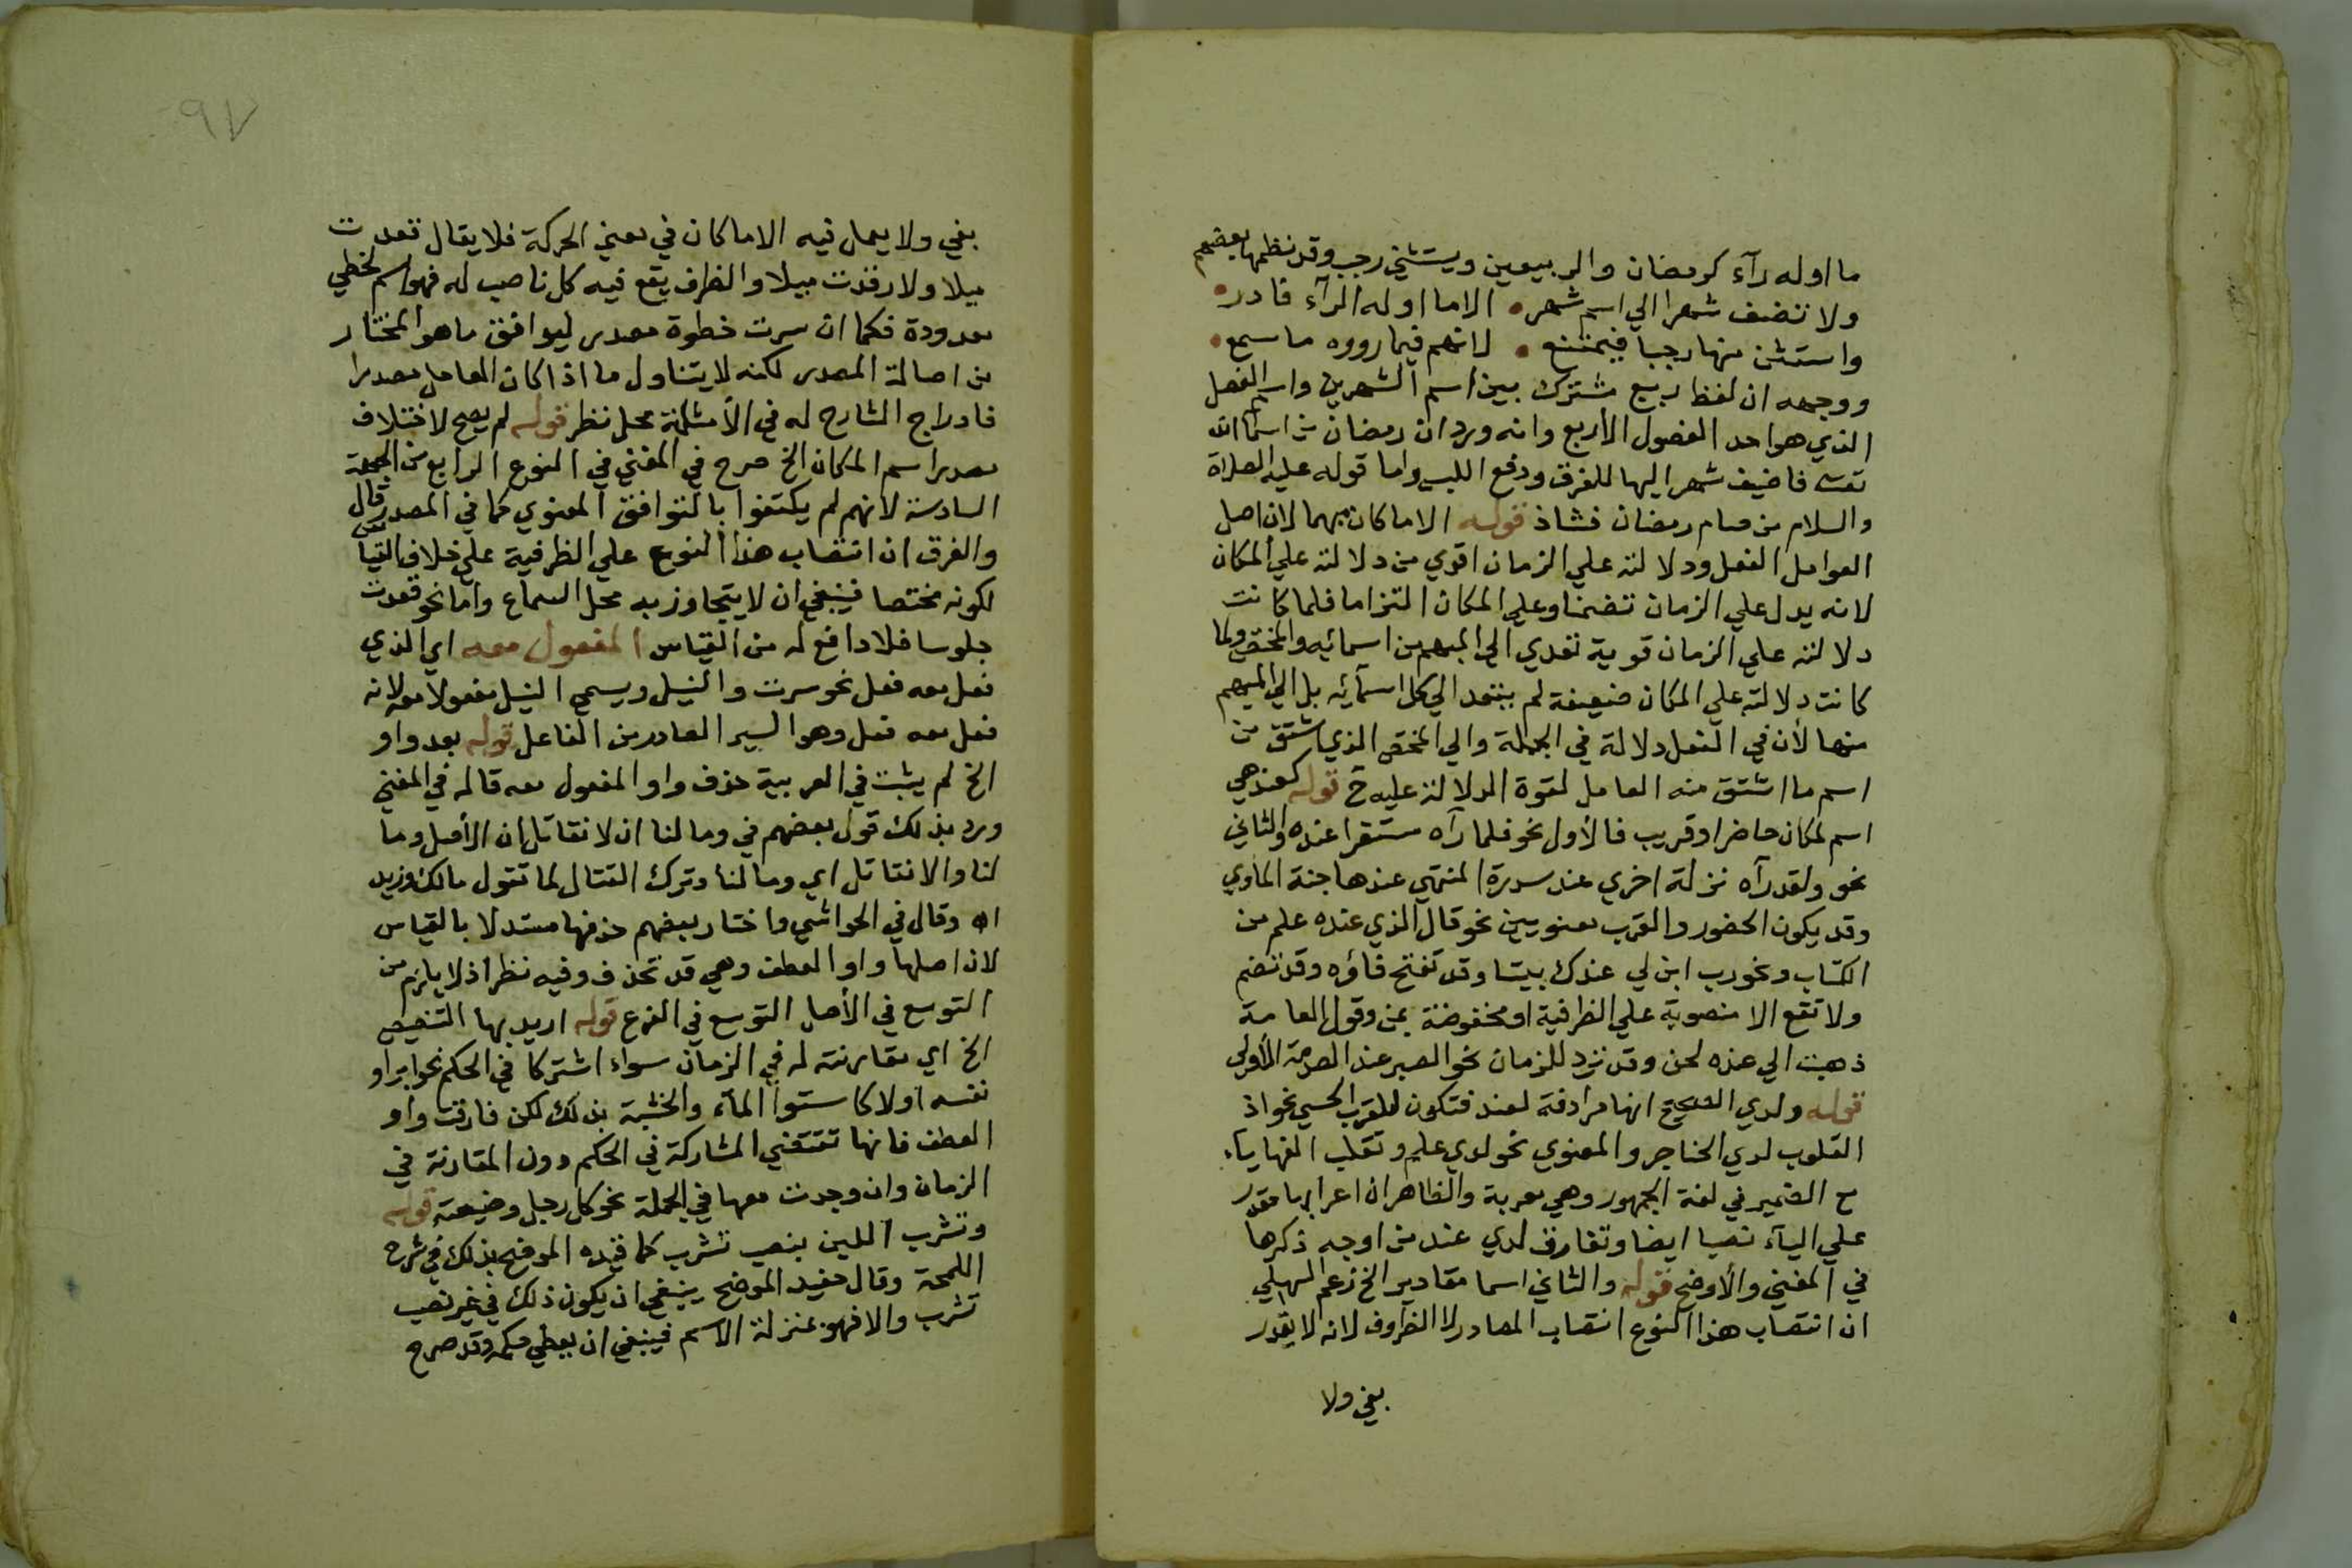 ما اوله رآء كرمضان والربيعين ويستثني رجب وقد نظمها بعضهم
ولا تضف شهرا الي اسم شهر • الا ما اوله الرآء فادر •
واستثن منها رجبا فيمتنع • لانهم فيما رووه ما سمع •
ووجهه ان لفظ ربيع مشترك بين اسم الشهرين واسم الفصل
الذي هو احد الفصول الأربع وانه ورد ان رمضان من اسما الله
تعالى فاضيف شهر اليها للفرق ودفع اللبس واما قوله عليه الصلاة
والسلام من صام رمضان فشاذ قوله الا ما كان مبهما لان اصل
العوامل الفعل ودلالته علي الزمان اقوي من دلالته علي المكان
لانه يدل علي الزمان تضمنا وعلي المكان التزاما فلما كانت
دلالته علي الزمان قوية تعدي الي المبهم من اسمائه والمختص ولما
كانت دلالته علي المكان ضعيفة لم يتعد الي كل اسمآئه بل الي المبهم
منها لأن في الفعل دلالة في الجملة والي المختص الذي اشتق من
اسم ما اشتق منه العامل لقوة الدلالة عليه ح قوله كعند هي
اسم لمكان حاضر او قريب فالأول نحو فلما رآه مستقرا عنده والثاني
نحو ولقد رآه نزلة اخري عند سدرة المنتهي عندها جنة المأوي
وقد يكون الحضور والقرب معنويين نحو قال الذي عنده علم من
الكتاب ونحو رب ابن لي عندك بيتا وقد تفتح فاؤه وقد تضم
ولا تقع الا منصوبة علي الظرفية او مخفوضة بمن وقول العامة
ذهبت الي عنده لحن وقد ترد للزمان نحو الصبر عند الصدمة الأولي
قوله ولدي الصحيح انها مرادفة لعند فتكون للقرب الحسي نحو اذ
القلوب لدي الحناجر والمعنوي نحو لدي علم وتقلب الفها يآء
مع الضمير في لغة الجمهور وهي معربة والظاهر ان اعرابها مقدر
علي اليآء نصبا ايضا وتفارق لدي عند من اوجه ذكرها
في المغني والأوضح قوله والثاني اسما مقادير الخ زعم السهيلي
ان انتصاب هذا النوع انتصاب المصادر لا الظروف لانه لا يقدر
بفي ولا
٩٧
بفي ولا يعمل فيه الا ما كان في معني الحركة فلا يقال قعدت
ميلا ولا رقدت ميلا والظرف يقع فيه كل ناصب له فهو اسم لخطي
معدودة فكما ان سرت خطوة مصدر ليوافق ما هو المختار
من اصالة المصدر لكنه لا يتناول ما اذا كان العامل مصدرا
فادراج الشارح له في الأمثلة محل نظر قوله لم يصح لاختلاف
مصدر اسم المكان الخ صرح في المغني في النوع الرابع من الجهة
السادسة لانهم لم يكتفوا بالتوافق المعنوي كما في المصدر قال
والفرق ان انتصاب هذا النوع علي الظرفية علي خلاف القياس
لكونه مختصا فينبغي ان لا يتجاوز به محل السماع واما نحو قعدت
جلوسا فلا دافع له من القياس المفعول معه اي الذي
فعل معه فعل نحو سرت والنيل ويسمي النيل مفعولا معه لانه
فعل معه فعل وهو السير الصادر من الفاعل قوله بعد واو
الخ لم يثبت في العربية حذف واو المفعول معه قاله في المغني
ورد بذلك قول بعضهم في وما لنا ان لا نقاتل ان الأصل وما
لنا والا نقاتل اي وما لنا وترك القتال لما تقول مالك وزيد
اه وقال في الحواشي واختار بعضهم حذفها مستدلا بالقياس
لان اصلها واو العطف وهي قد تحذف وفيه نظر اذ لا يلزم من
التوسع في الأصل التوسع في الفرع قوله اريد بها التنصيص
الخ اي مقارنته له في الزمان سواء اشتركا في الحكم نحو ابراو
نفسه او لا كاستوا المآء والخشبة بذلك لكن فارقت واو
العطف فانها تقتضي المشاركة في الحكم دون المقارنة في
الزمان وان وجدت معها في الجملة نحو كل رجل وضيعته قوله
وتشرب اللبن بنصب تشرب كما قيده الموضح بذلك في شرح
اللمحة وقال حفيد الموضح ينبغي ان يكون ذلك في غير نصب
تشرب والا فهو بمنزلة الاسم فينبغي ان يعطي حكمه وقد صرح